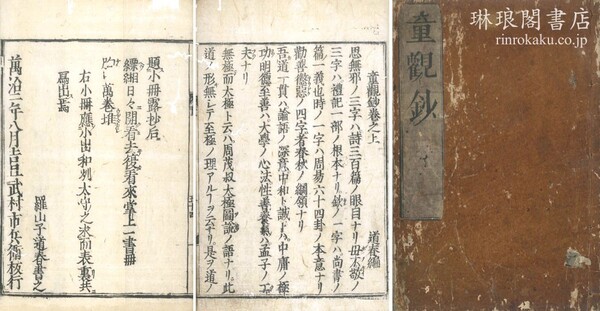 琳琅閣書店
rinrokaku.co.jp
童觀鈔
童觀鈔卷之上
道春編
思無邪ノ三字ハ詩三百篇ノ眼目ナリ毋不敬ノ
三字ハ禮記一部ノ根本ナリ欽ノ一字ハ尚書ノ
篇一義也時ノ一字ハ周易六十四卦ノ本意ナリ
勸善懲惡ノ四字者春秋ノ綱領ナリ
吾道一貫ハ論語ノ深意中和ト誠トハ中庸ノ極
功明德至善ハ大學ノ心法性善養氣ハ孟子ノ工
夫ナリ
無極而太極ト云ハ周茂叔太極圖說ノ語ナリ此
道ノ形無シテ至極ノ理アルヿヲ云ナリ是ヲ道
題小冊露抄后
縹緗日々開看去復看來掌上一書冊
萬卷堆
右小冊應小出和刕太守之求而表裏共
寫出焉
羅山子道春書之
萬治二年八月吉旦武村市兵衛板行